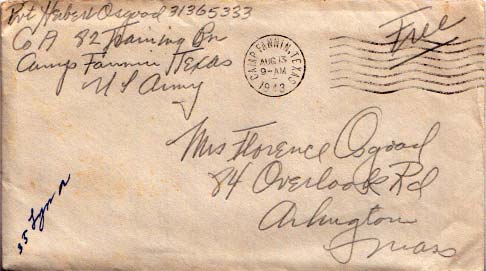 Pvt Herbert Osgood 31365333
Co A 82 Training Bn
Camp Fannin Texas
US Army
CAMP FANNIN, TEXAS
AUG 13
9-AM
1943
Free
Mrs Florence Osgood
84 Overlook Rd
Arlington
Mass